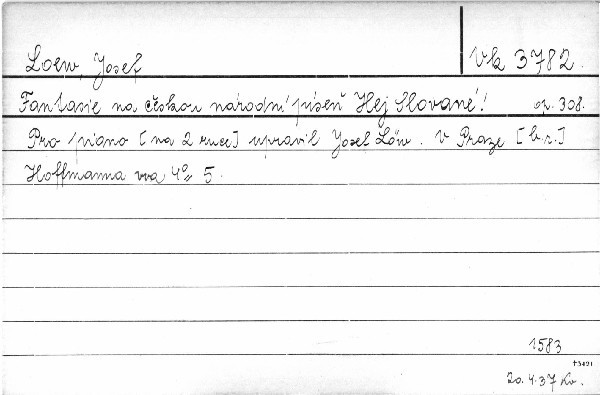 Loew, Josef
Vk 3782.
Fantasie na českou národní píseň Hej Slované! op. 308.
Pro piano [na 2 ruce] upravil Josef Löw. V Praze [b.r.]
Hoffmanna vva 4° 5.
1583
+3421
20.4.37 Kv.